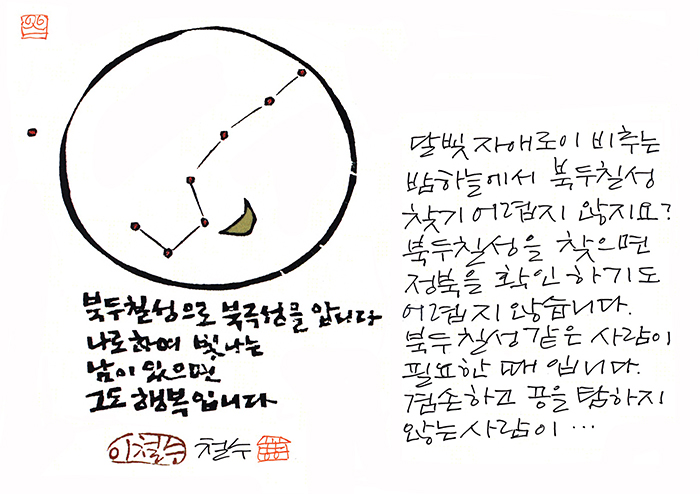 북두칠성으로 북극성을 압니다
나로하여 빛나는
남이 있으면
그도 행복입니다
이철수 철수
달빛 자애로이 비추는
밤하늘에서 북두칠성
찾기 어렵지 않지요?
북두칠성을 찾으면
정북을 확인 하기도
어렵지 않습니다.
북두칠성 같은 사람이
필요한 때 입니다.
겸손하고 공을 탐하지
않는 사람이 …